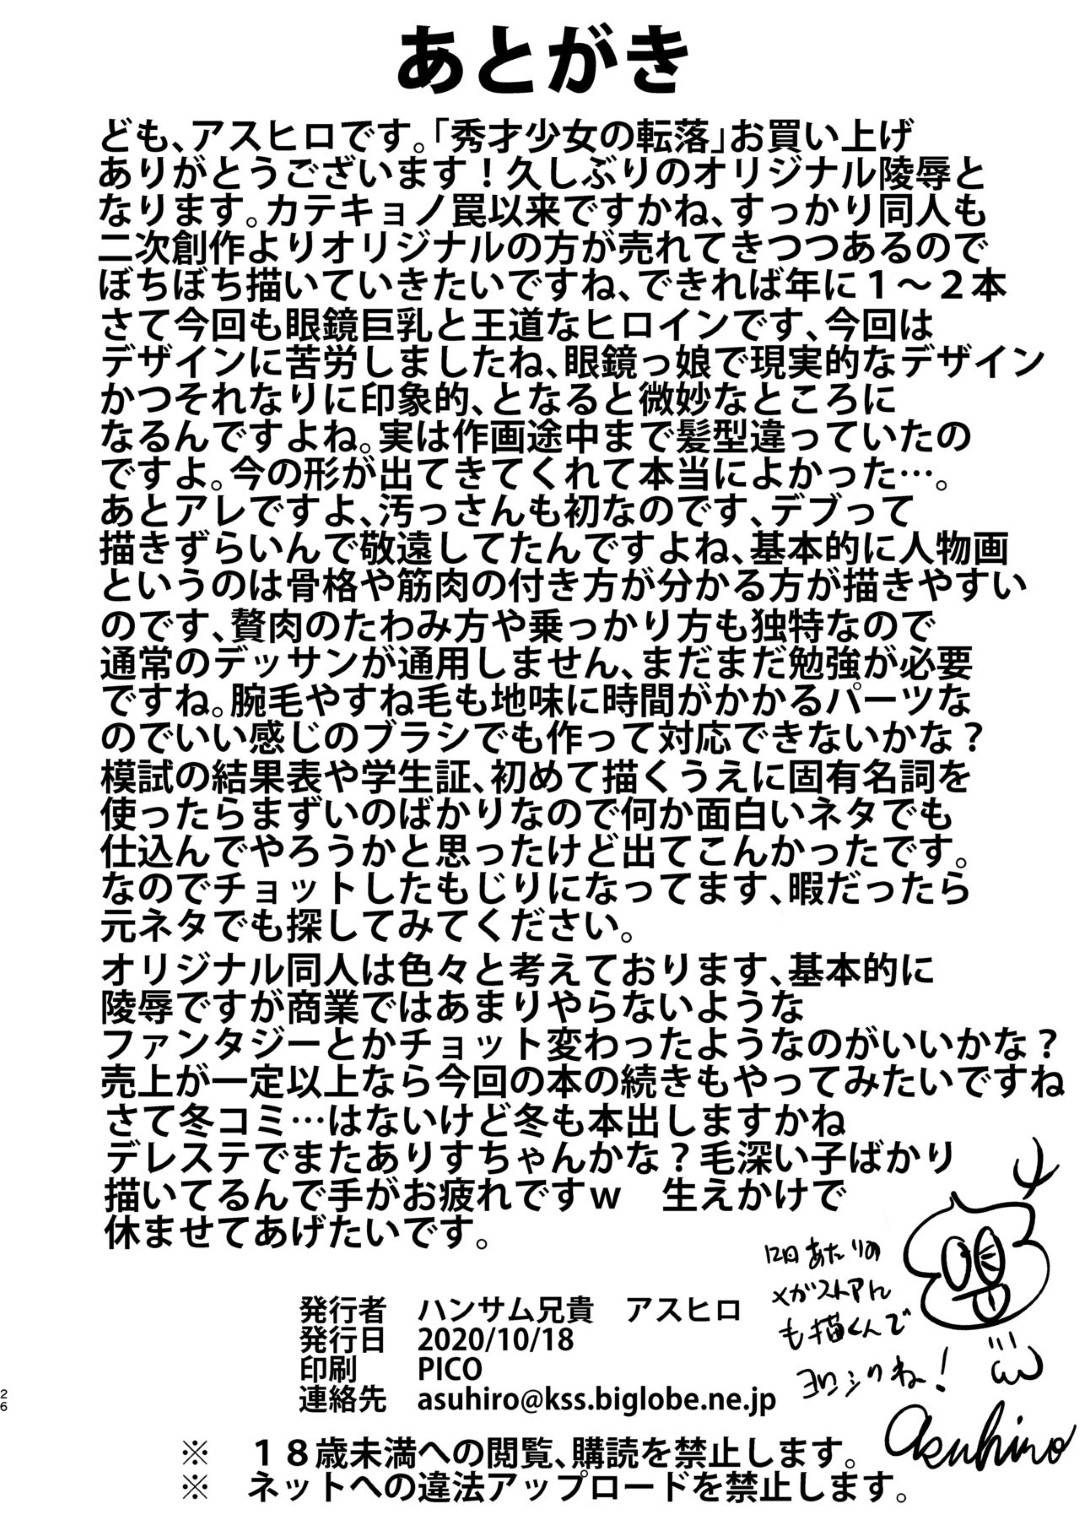 あとがき
ども、アスヒロです。「秀才少女の転落」お買い上げ
ありがとうございます！久しぶりのオリジナル陵辱と
なります。カテキョノ罠以来ですかね、すっかり同人も
二次創作よりオリジナルの方が売れてきつつあるので
ぼちぼち描いていきたいですね、できれば年に１～２本
さて今回も眼鏡巨乳と王道なヒロインです、今回は
デザインに苦労しましたね、眼鏡っ娘で現実的なデザイン
かつそれなりに印象的、となると微妙なところに
なるんですよね。実は作画途中まで髪型違っていたの
ですよ。今の形が出てきてくれて本当によかった…。
あとアレですよ、汚っさんも初なのです、デブって
描きずらいんで敬遠してたんですよね、基本的に人物画
というのは骨格や筋肉の付き方が分かる方が描きやすい
のです、贅肉のたわみ方や乗っかり方も独特なので
通常のデッサンが通用しません、まだまだ勉強が必要
ですね。腕毛やすね毛も地味に時間がかかるパーツな
のでいい感じのブラシでも作って対応できないかな？
模試の結果表や学生証、初めて描くうえに固有名詞を
使ったらまずいのばかりなので何か面白いネタでも
仕込んでやろうかと思ったけど出てこんかったです。
なのでチョットしたもじりになってます、暇だったら
元ネタでも探してみてください。
オリジナル同人は色々と考えております、基本的に
陵辱ですが商業ではあまりやらないような
ファンタジーとかチョット変わったようなのがいいかな？
売上が一定以上なら今回の本の続きもやってみたいですね
さて冬コミ…はないけど冬も本出しますかね
デレステでまたありすちゃんかな？毛深い子ばかり
描いてるんで手がお疲れですｗ　生えかけで
休ませてあげたいです。
12日あたりの
メガストアん
も描くんで
ヨロシクね！
asuhiro
発行者　ハンサム兄貴　アスヒロ
発行日　2020/10/18
印刷　PICO
連絡先　asuhiro@kss.biglobe.ne.jp
※　１８歳未満への閲覧、購読を禁止します。
※　ネットへの違法アップロードを禁止します。
26